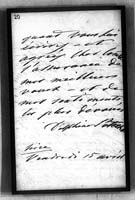 20
quand vous lui
écrirez – et
agréez
l'assurance de
mes meilleurs
vœux – et de
mes sentiments
les plus dévoués
Nice
Vendredi 15 avril